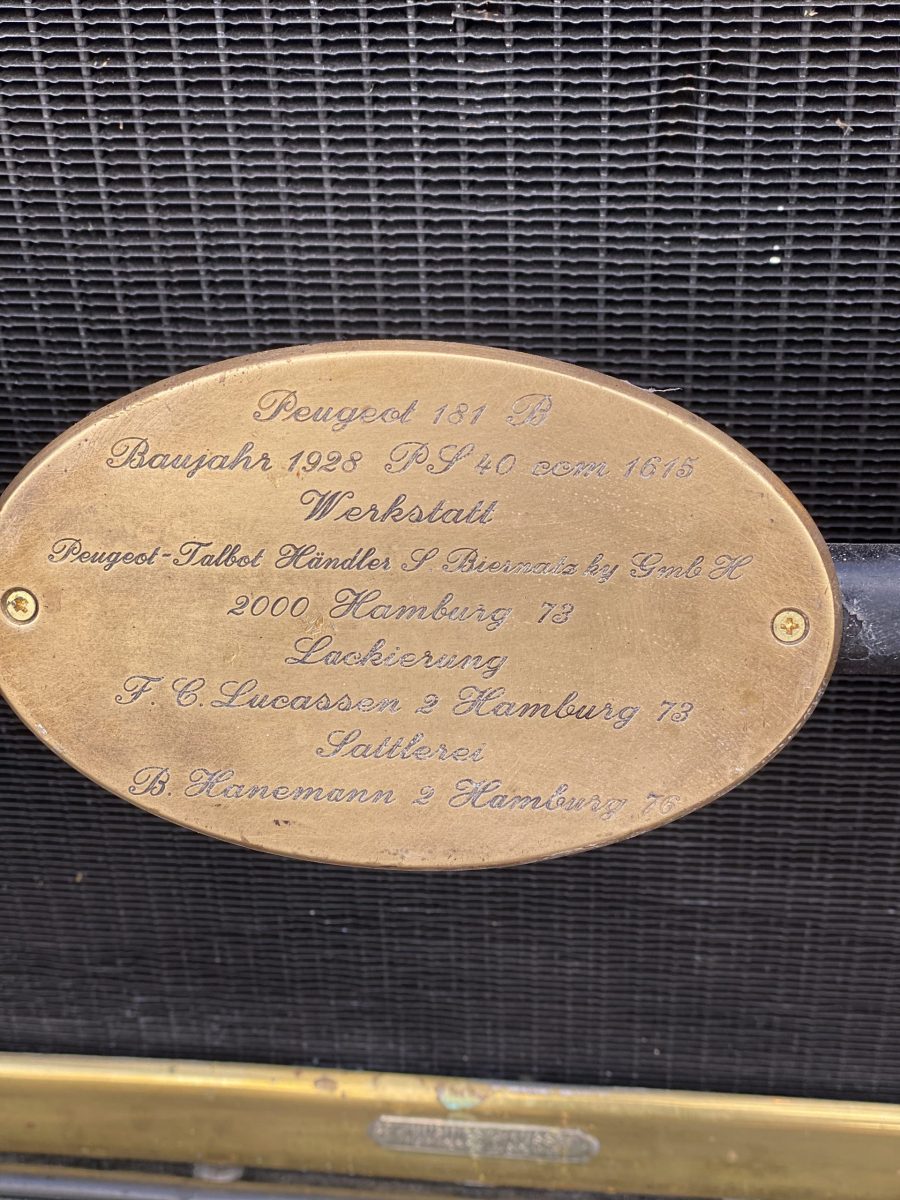 Peugeot 181 B
Baujahr 1928 PS 40 ccm 1615
Werkstatt
Peugeot-Talbot Händler S. Biernatzky GmbH
2000 Hamburg 73
Lackierung
F. C. Lucassen 2 Hamburg 73
Sattlerei
B. Hanemann 2 Hamburg 76